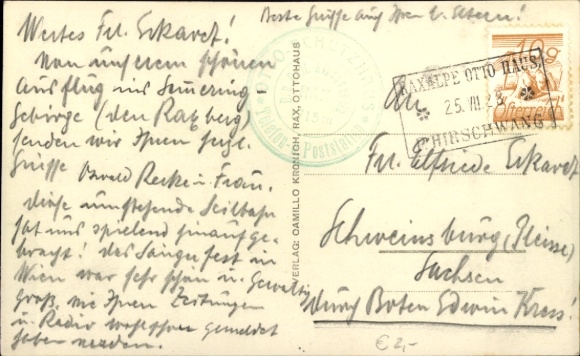 Beste Grüsse auch Ihren l. Eltern!
Wertes Frl. Eckardt!
Von unserem schönen
Ausflug ins Semering
Gebirge (den Raxberg)
senden wir Ihnen herzl.
Grüsse Oswald Recke u. Frau.
diese umstehende Seilbahn
hat uns spielend hinaufge-
bracht! das Sängerfest in
Wien war sehr schön u. Gewaltig
Groß, wie Ihnen Zeitungen
u. Radio wohl schon gemeldet
haben werden.
OTTO SCHUTZHAUS
Telefon- u. Poststation
VERLAG: CAMILLO KRONICH, RAX, OTTOHAUS
RAXALPE OTTO HAUS
25. VII. 28
HIRSCHWANG
10g
Österreich
An
Frl. Elfriede Eckardt
Schweinsburg (Pleisse)
Sachsen
durch Boten Edwin Kress!
€ 2,-